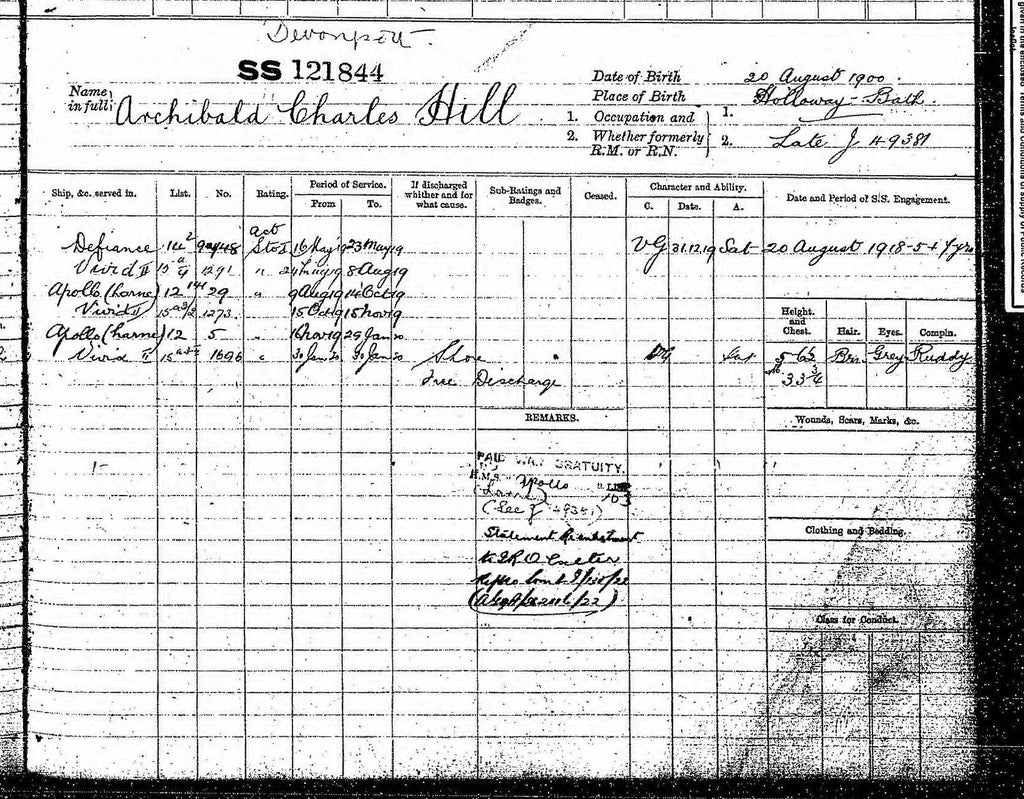 Devonport.
SS 121844
Name in full: Archibald Charles Hill
Date of Birth 20 August 1900.
Place of Birth Holloway - Bath.
1. Occupation and 1.
2. Whether formerly R.M. or R.N. 2. Late J 49381
Ship, &c. served in. List. No. Rating. Period of Service. From To. If discharged whither and for what cause. Sub-Ratings and Badges. Ceased. Character and Ability. C. Date. A. Date and Period of S.S. Engagement.
Defiance Act Sto I 16 May 19 23 May 19 VG 31.12.19 Sat 20 August 1918 - 5 + 7 yrs
Vivid II 1291 " 8 Aug 19
Apollo (Larne) 12 29 " 9 Aug 19 14 Oct 19
Vivid II 1273 15 Oct 19 15 Nov 19
Apollo (Larne) 12 5 " 16 Nov 19 29 Jan 20
Vivid II 1696 " 30 Jan 20 30 Jan 20 Shore VG Sat
Free Discharge
Height. and Chest. Hair. Eyes. Compln.
Brn Grey Ruddy
REMARKS.
Wounds, Scars, Marks, &c.
PAID WAR GRATUITY.
H.M.S. Apollo LIST
(Larne) 103
(See J 49381)
Statement Re enlistment
to I.R.O. Exeter
Clothing and Bedding.
Class for Conduct.